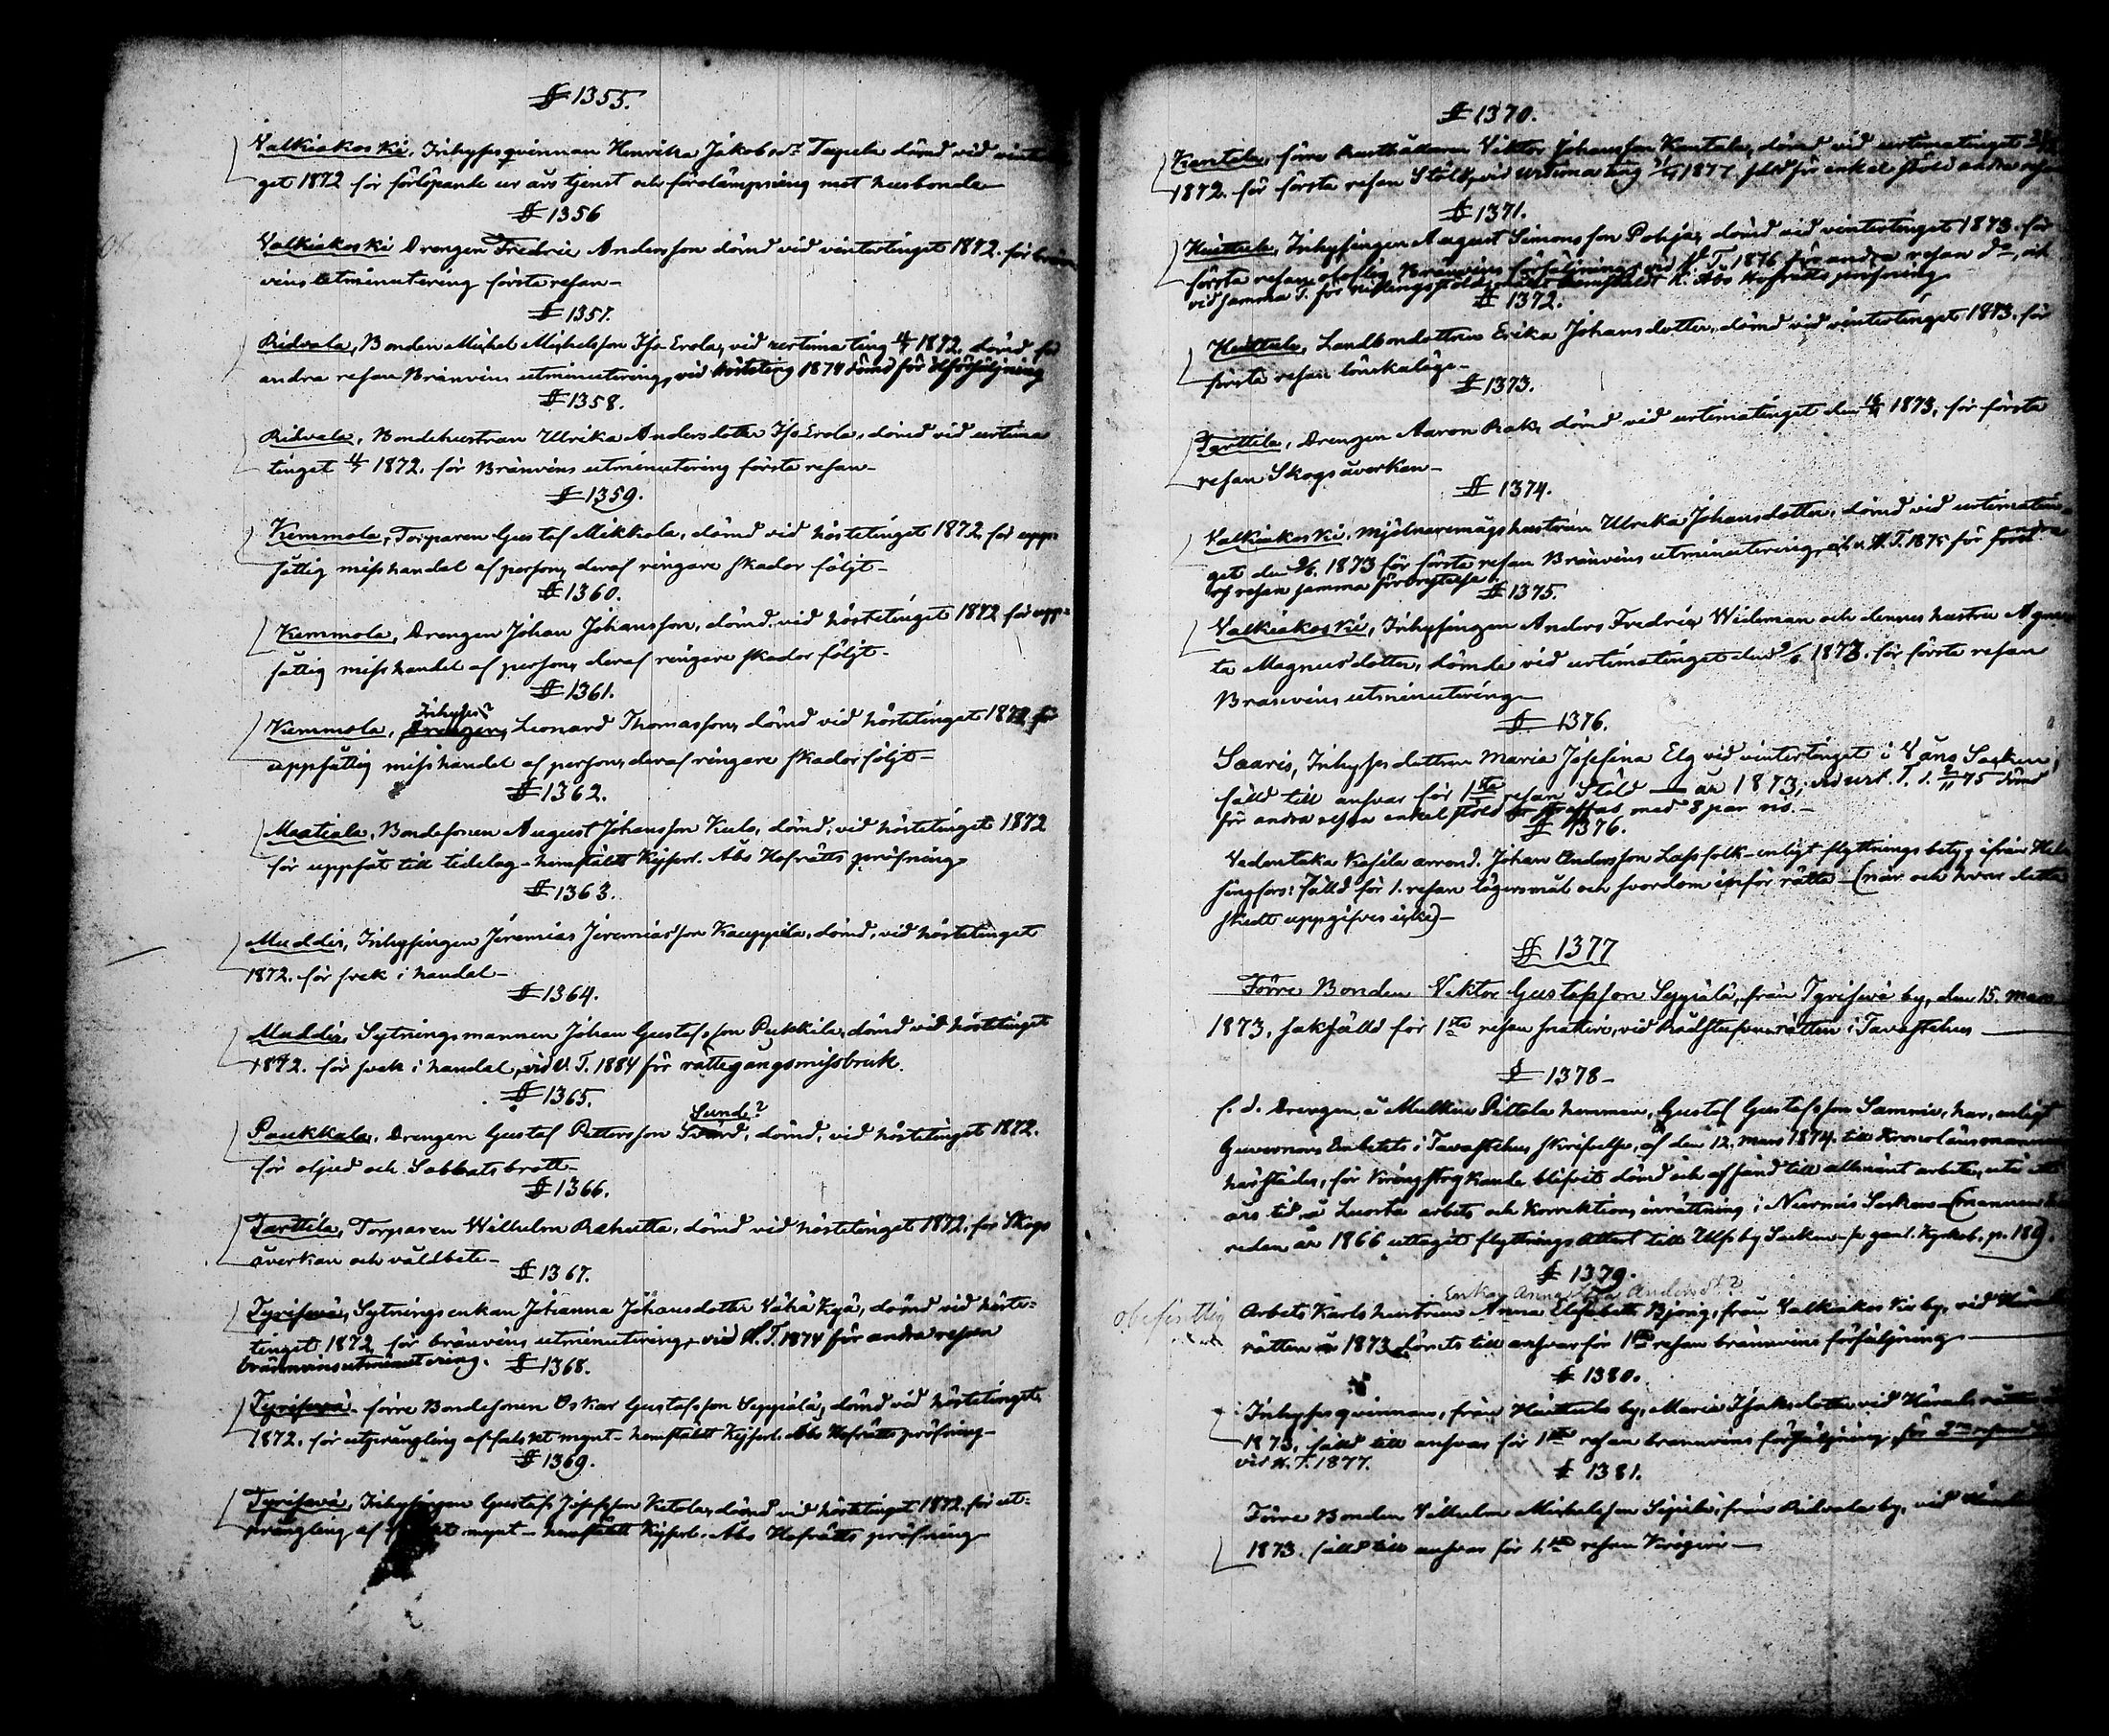 § 1355.
Valkiakoski, Inhysesqvinnan Henrika Jakobsdr Tapela dömd vid vinterti
get 1872 för förlöpande ur års tjenst och förolämpning mot husbonde
§ 1356
Valkiakoski Drengen Fredric Andersson dömd vid vintertinget 1872. för brän
vins utminutering första resan-
§ 1357.
Ridvala, Bonden Michel Michelsson Iso-Erola, vid urtima ting 4/7 1872. dömd för
andra resan Bränvins utminutering, vid hösteting 1874 dömd för ölförsäljning
§ 1358.
Ridvala, Bondehustrun Ulrika Andersdotter Iso Erola, dömd vid urtima
tinget 4/7 1872. för Bränvins utminutering första resan-
§ 1359.
Kemmola, Torparen Gustaf Mikkola, dömd vid höstetinget 1872, för upp-
såttig misshandel af person, deraf ringare skador följt-
§ 1360.
Kemmola, Drengen Johan Johansson, dömd vid höstetinget 1872 för upp-
såttig misshandel af person, deraf ringare skador följt-
§ 1361.
Inhyses?
Kemmola, Drengen, Leonard Thomasson, dömd vid höstetinget 1872 för
uppsåttig misshandel af person, deraf ringare skador följt-
§ 1362.
Maatiala, Bondesonen August Johansson Kulo, dömd, vid höstetinget 1872
för uppsåt till tidelag-hemstäldt Kejserl. Åbo Hofrätts pröfning-
§ 1363.
Muddis, Inhysingen Jeremias Jeremiasson Kauppila, dömd, vid höstetinget
1872. för svek i handel-
§ 1364.
Muddis, Sytningsmannen Johan Gustafsson Pukkila, dömd vid höstetinget
1872. för svek i handel, vid V. T. 1884 för rättegångsmissbruk.
§ 1365.
Sund?
Paukkala, Drengen Gustaf Pettersson Svärd, dömd, vid höstetinget 1872.
för oljud och Sabbatsbrott-
§ 1366.
Tarttila, Torparen Wilhelm Rahutta, dömd vid höstetinget 1872, för Skogs
åverkan och våldbete-
§ 1367.
Tyrisevä, Sytningsenkan Johanna Johansdotter Vähä Kyä, dömd vid höste-
tinget 1872, för bränvins utminutering, vid H. T. 1874 för andra resan
brännvinsutminutering.
§ 1368.
Tyrisevä. förre Bondesonen Oskar Gustafsson Seppälä, dömd vid höstetinget
1872. för utprångling af falskt mynt-hemstäldt Kejserl. Åbo Hofrätts pröfning-
§ 1369.
Tyrisevä, Inhysingen Gustaf Josefsson Ketola, dömd vid höstetinget 1872. för ut-
prångling af mynt-hemstäldt Kejserl. Åbo Hofrätts pröfning
§ 1370.
Kantala, förre Rusthållaren Viktor Johansson Kantala, dömd vid urtimatinget
1872. för första resan Stöld, vid urtima ting 1877 för enkel stöld andra resan
§ 1371.
Huittula, Inhysingen August Simonsson Pohja, dömd vid vintertinget 1873. för
första resan olaflig Bränvins försäljning, vid V. T. 1876 för andra resan do, och
vid samma T. för hemstäldt K. Åbo Hofrätts pröfning
§ 1372.
Huittula, Landbondottren Erika Johansdotter, dömd vid vintertinget 1873. för
första resan lönskaläge-
§ 1373.
Tarttila, Drengen Aaron Rak, dömd vid urtimatinget den 1873, för första
resan Skogsåverkan-
§ 1374.
Valkiakoski, mjölnaremågshustrun Ulrika Johansdotter, dömd vid urtimatin
get den 2/6. 1873 för första resan Bränvins utminutering, H. T. 1875 för andra
resan samma förbrytelse.
§ 1375.
Valkiakoski, Inhysingen Anders Fredric Wideman och dennes hustru Agne
ta Magnusdotter, dömde vid urtimatinget den 2/6 1873. för första resan
Bränvins utminutering-
§ 1376.
Saaris, Inhyses dottren Maria Josefina Elg vid vintertinget i Vånå Socken,
fälld till ansvar för 1sta resan Stöld år 1873; vid urt. T. d. 2/11 75 dömd
för andra resan enkel stöld med 8 par ris.-
§ 1376.
Vedentaka Kasila arrend. Johan Andersson Lassfolk-enligt flyttningsbetyg ifrån Hel
singfors: Fälld för 1. resan lägersmål och svordom inför rätta-(när och hvar detta
skedt uppgifves icke)-
§ 1377
Förre Bonden Viktor Gustafsson Seppälä, från Tyrisevä by, den 15. mars
1873, sakfälld för 1sta resan snatteri, vid Rådstufvurätten i Tavastehus
§ 1378-
f. d. Drengen å Mulkin Pittala hemman, Gustaf Gustafsson Sammie, har, enligt
Guvernörs Embetets i Tavastehus skrifvelse, af den 12. mars 1874. till Kronolänsmannen
härstädes, för kringstrykande blifvit dömd och afsänd till allmänt arbete, uti ett
års tid å Luosta arbets och korrektions inrättning i Nurmis Socken-(mannen
redan år 1866 uttagit flyttnings Attest till Ulfsby Socken- se gaml. Kyrkob. p. 189).
§ 1379.
Enkan Anna Lisa Andersdr?
obefintlig
Arbets Karls hustrun Anna Elisabeth Bjong, från Valkiakoski by, vid Härads
rätten år 1873 dömts till ansvar för 1sta resan brännvins försäljning
§ 1380.
Inhyses qvinnan, från Huittula by, Maria Isaksdotter vid Häradsrätten
1873. fälld till ansvar för 1sta resan brännvins försäljning, för 2dra resan do
vid H. T. 1877.
§ 1381.
Förre Bonden Vilhelm Michelsson Sipilä, från Ridvala by, vid
1873. fälld till ansvar för 1sta resan